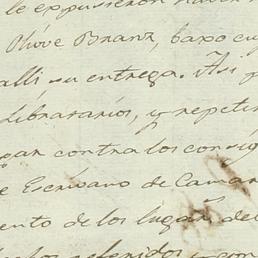 le expusieron
Olive Branz, baxo cu
alli su entrega. Asi p
libratarios, y repetir
gar contra los consig
e Escrivano de Camar
ento de los lugar del
referidos y con